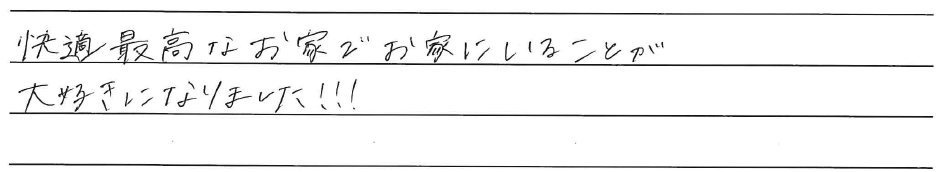 快適最高なお家でお家にいることが
大好きになりました!!!